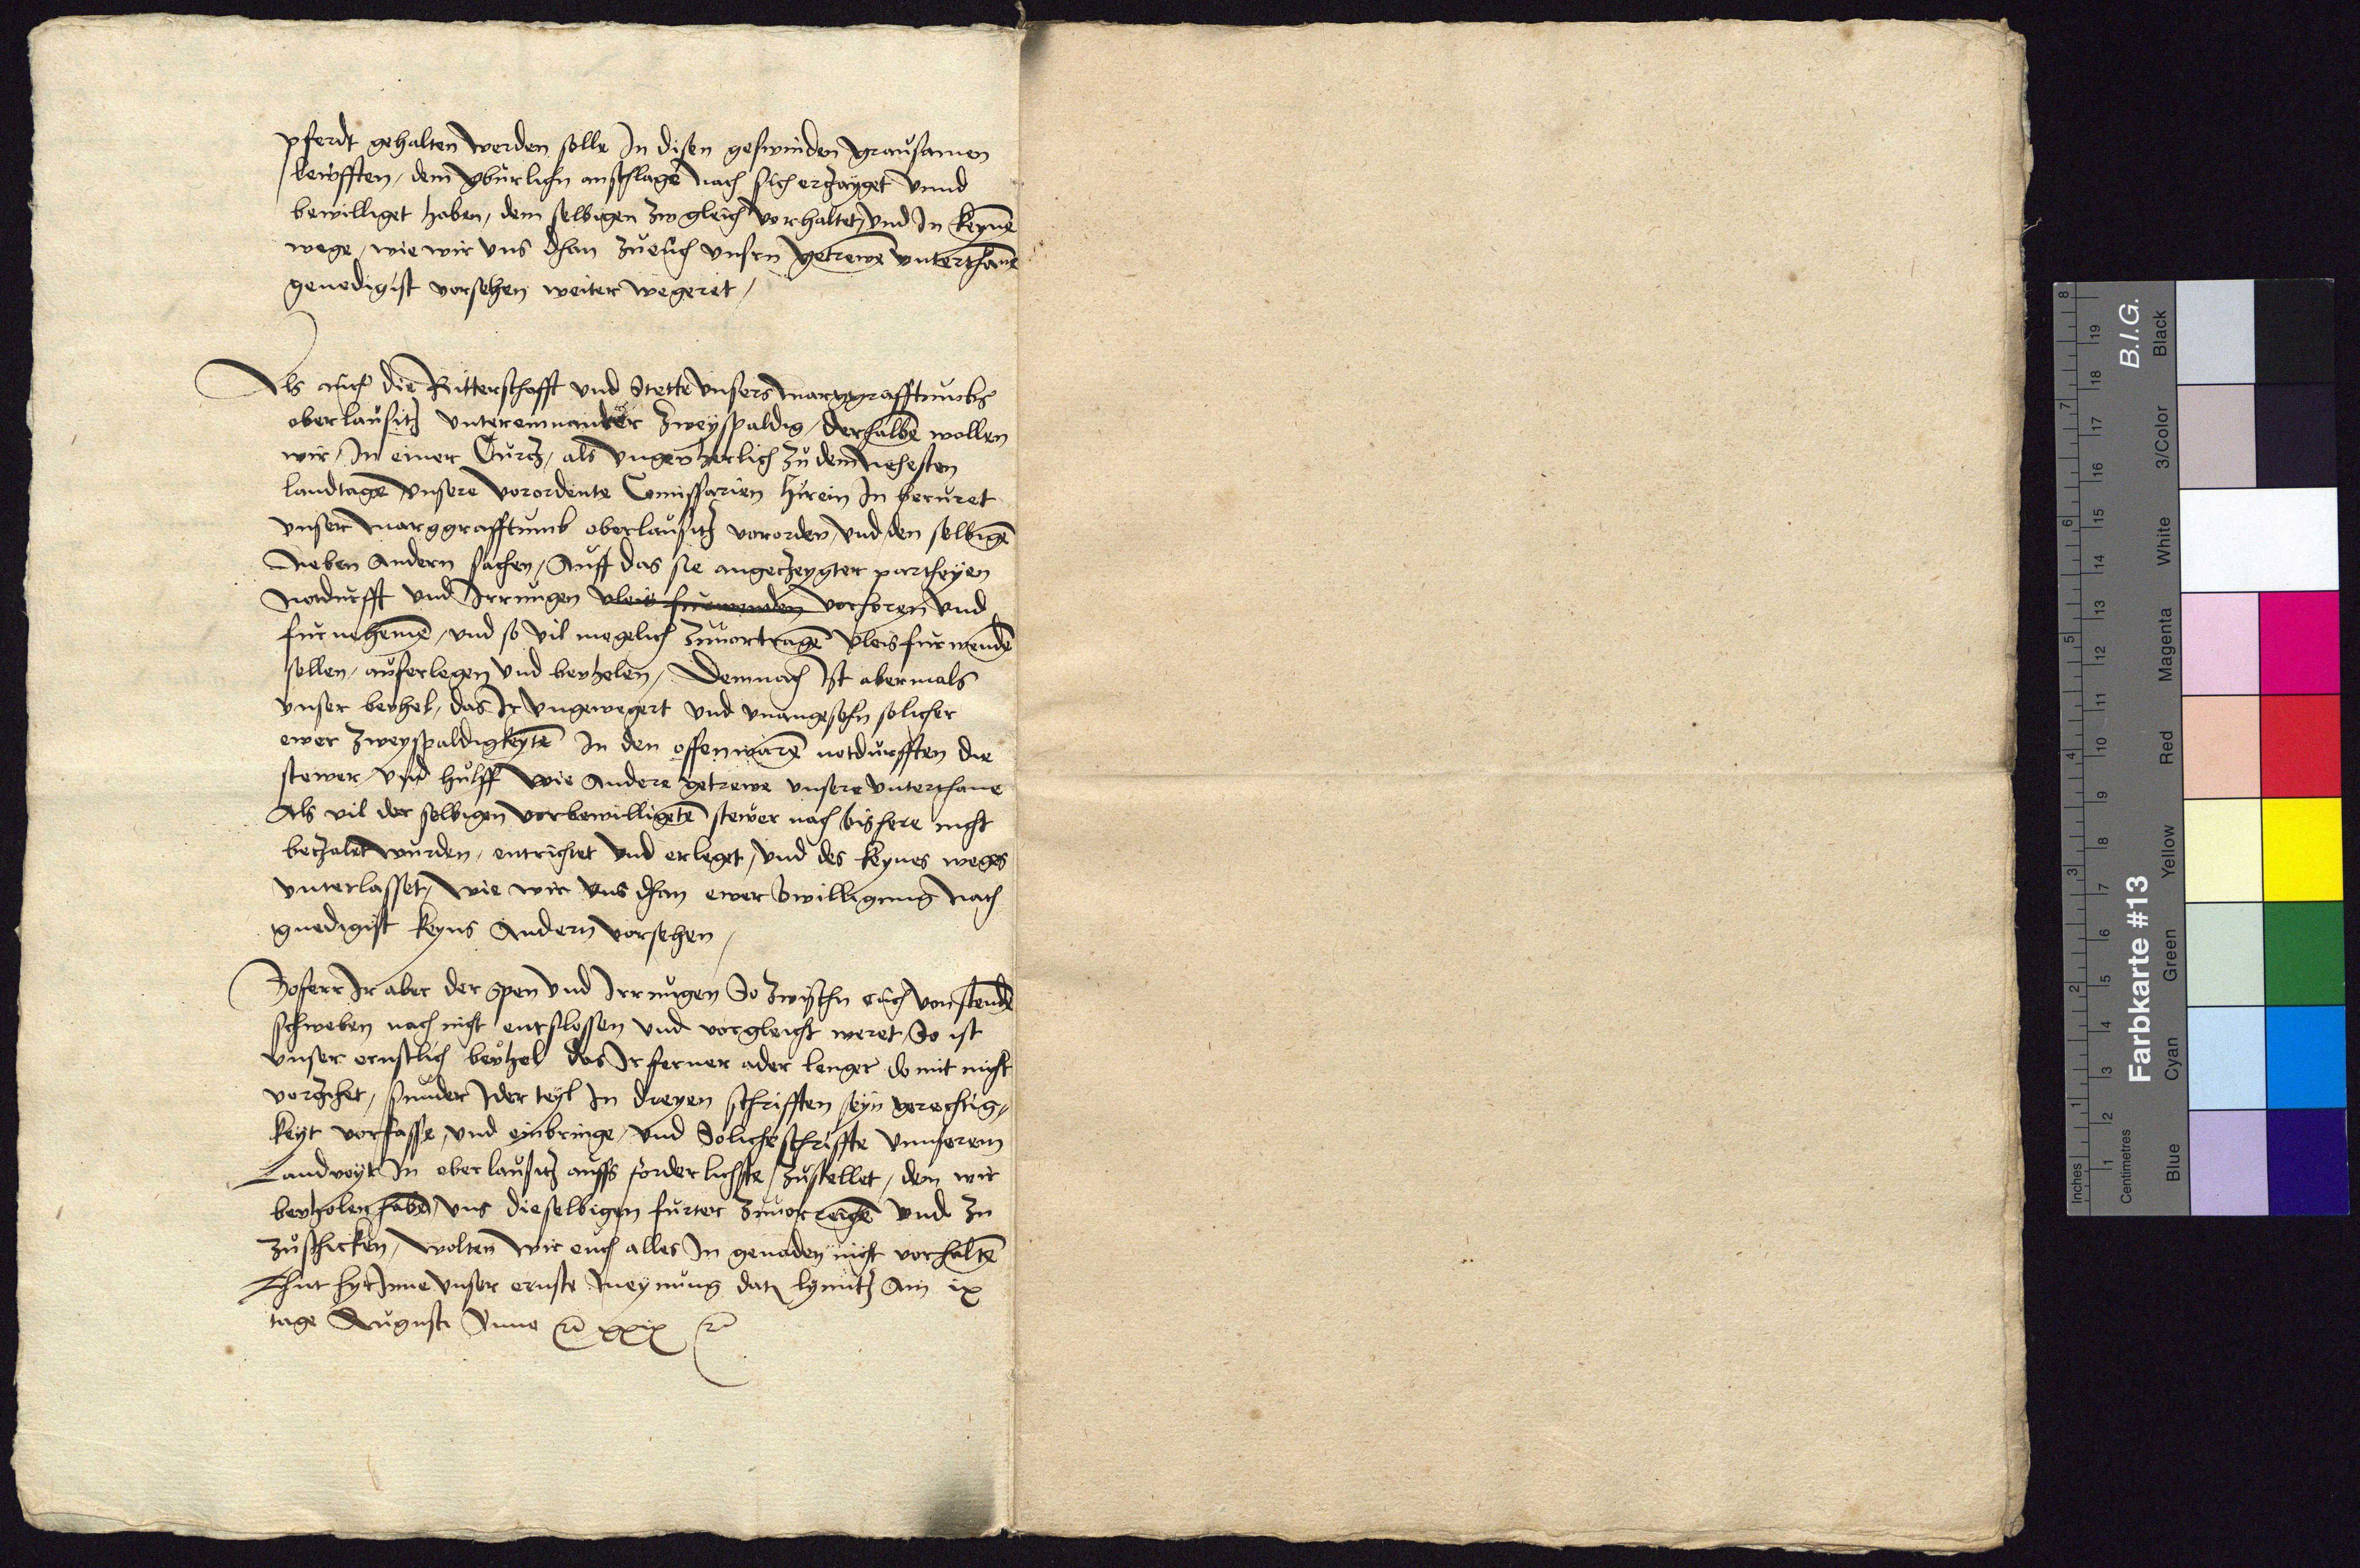 pferdt gehalten werden solle In disen geswinden grausamen
leufften, dem gburlichn anschlage nach sich erzayget vnnd
bewilliget haben, dem selbigen zw gleich vorhaltet, vnd In keyne
wege, wie wir vns dhan zu euch vnsern getrewe vnterthane
genedigist vorsehen weiter wegeret,
Als auch die Ritterschafft vnd Stette vnsers marggrafftumbs
oberlausitz vntereinnander zweyspaldig, derhalbe wollen
wir, In einer Curtz, als vngeverlich zu dem nehesten
landtage vnsere vorordente Comissarien hirein In beruret
vnser marggrafftumb oberlausitz vororden, vnd den selbige
neben andern sachen, Auff das sie angezeygter partheyen
notdurfft vnd Irrungen vleis furwenden vorhoren vnd
furnehemen, vnd so vil mogelich zuuortrage vleis furwende
sollen, auferlegen vnd beuhelen, Demnach Ist abermals
vnser beuhel, das Ir vngewegert vnd vnangesehn solicher
ewer zweyspaldigkeyte In den offenwaren notdurfften die
stewer vnd hulff wie andere getrewe vnsere vnterthane
Als vil der selbigen vorbewilligete stewer nach bishere nicht
bezalet wurden, entrichtet vnd erleget, vnd des keynes weges
vnterlasset, wie wir vns dhan ewer bwilligung nach
gnedigist keyns andern vorsehen,
Soferr Ir aber der spen vnd Irrungen So zwischn euch von stende
schweben nach nicht entslossen vnd vorgleicht weret, So ist
vnser ernstlich beuhel das Ir ferner ader lenger do mit nicht
vorzihet, sunder Ider teyl In dreyen schrifften seyn gerechtig,
keyt vorfasse, vnd einbringe, vnd Soliche schriffte vnnserem
Landvoyt In oberlausitz auffs forderlichste, zustellet, dem wir
beuholen habe, vns dieselbigen furter zuuorreiche vnd zu
zuschicken, wolten wir euch alles In genaden nicht vorhalte
Thut hyrInne vnser ernste meynung dat lynntz Am ix
tage Augusti Anno xxix
Inches
Centimetres
Farbkarte #13
B.I.G.
Blue
Cyan
Green
Yellow
Red
Magenta
White
3/Color
Black